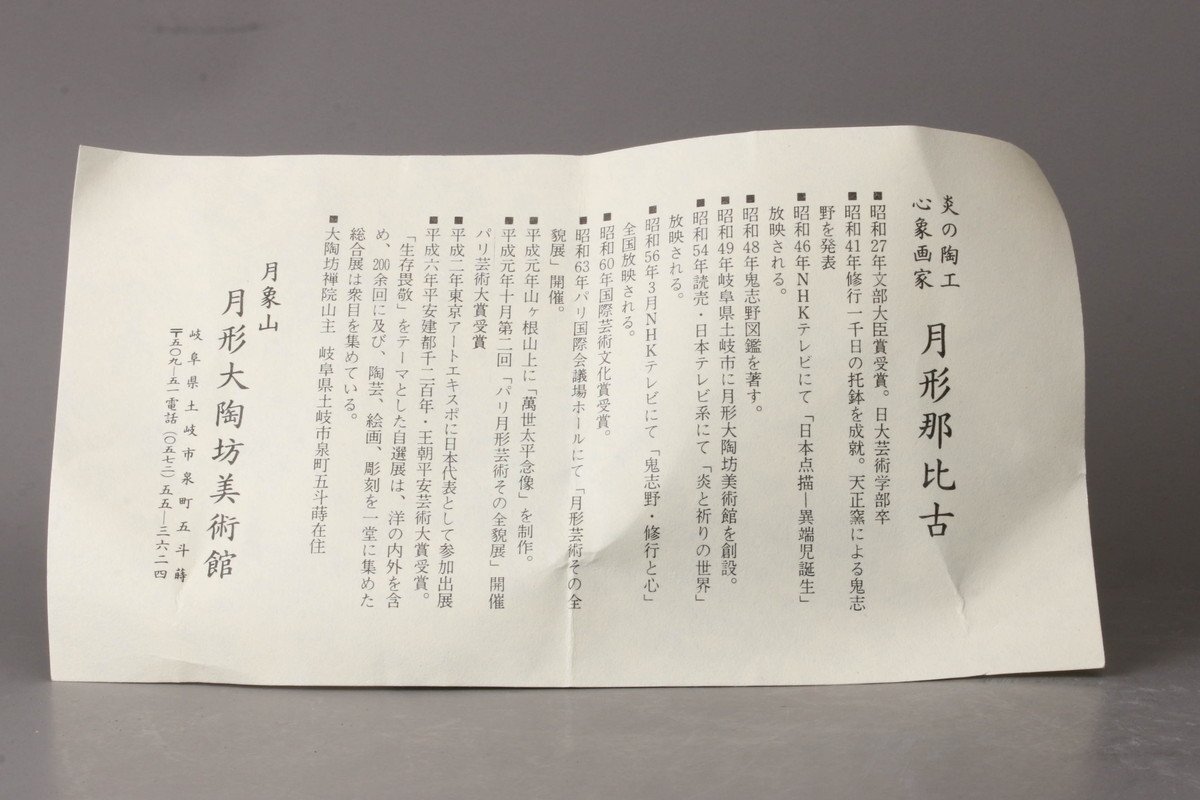 炎の陶工
心象画家
月形那比古
■昭和27年文部大臣賞受賞。日大芸術学部卒
■昭和41年修行一千日の托鉢を成就。天正窯による鬼志
野を発表
■昭和46年NHKテレビにて「日本点描―異端児誕生」
放映される。
■昭和48年鬼志野図鑑を著す。
■昭和49年岐阜県土岐市に月形大陶坊美術館を創設。
■昭和54年読売・日本テレビ系にて「炎と祈りの世界」
放映される。
■昭和56年3月NHKテレビにて「鬼志野・修行と心」
全国放映される。
■昭和60年国際芸術文化賞受賞。
■昭和63年パリ国際会議場ホールにて「月形芸術その全
貌展」開催。
■平成元年山ヶ根山上に「萬世太平念像」を制作。
■平成元年十月第二回「パリ月形芸術その全貌展」開催
パリ芸術大賞受賞
■平成二年東京アートエキスポに日本代表として参加出展
■平成六年平安建都千二百年・王朝平安芸術大賞受賞。
「生存畏敬」をテーマとした自選展は、洋の内外を含
め、200余回に及び、陶芸、絵画、彫刻を一堂に集めた
総合展は衆目を集めている。
■大陶坊禅院山主 岐阜県土岐市泉町五斗蒔在住
月象山
月形大陶坊美術館
岐阜県土岐市泉町五斗蒔
〒五〇九―五一電話(〇五七二)五五―三六二四